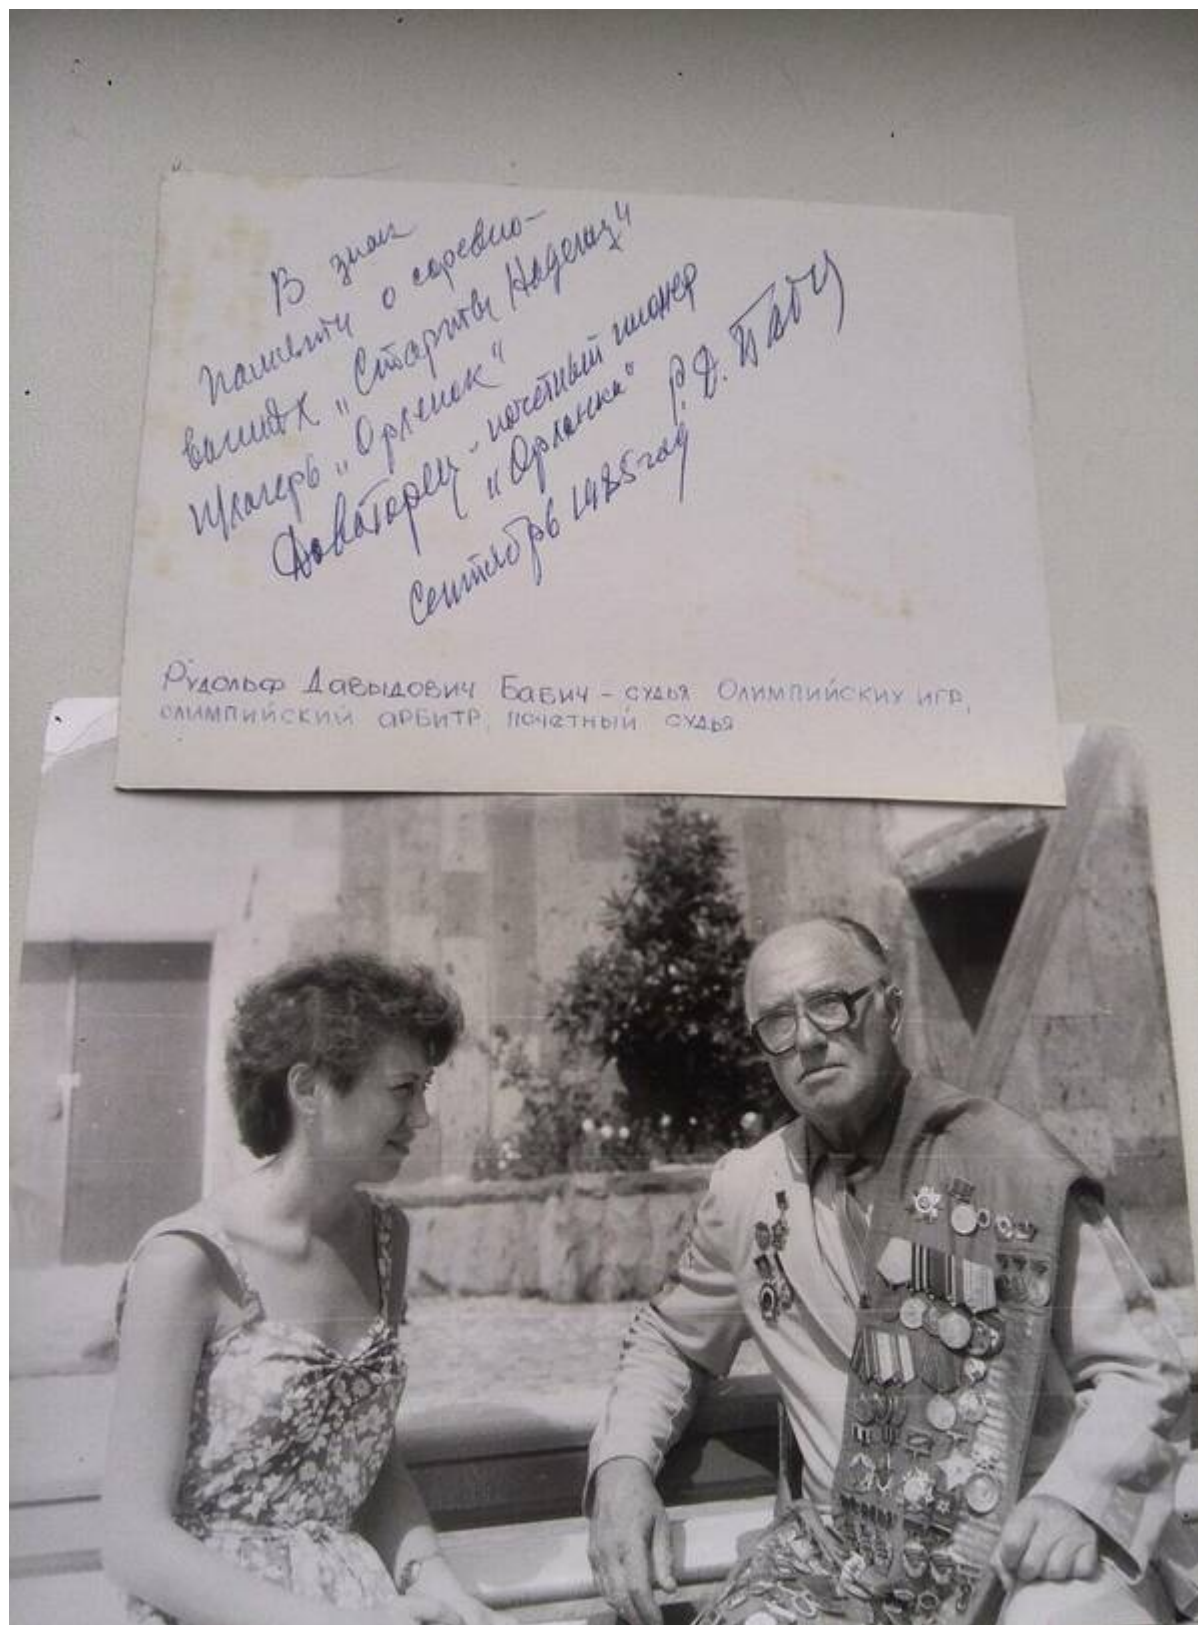 В знак
памяти о соревно-
ваниях „Старты Надежд"
п/лагерь „Орленок"
Доваторец - почётный пионер
„Орленка" Р. Д.
сентябрь 1985 год
Рудольф Давыдович Бабич - судья Олимпийских игр,
олимпийский арбитр, почетный судья